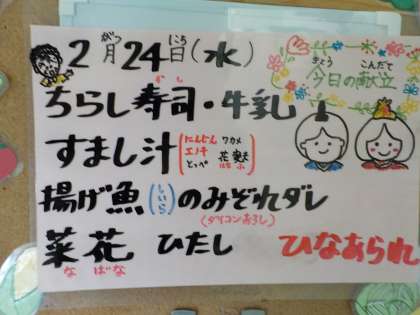 2月24日(水)
がつ にち
きょう こんだて
今日の献立
ちらし寿司・牛乳
ずし
すまし汁
にんじん ワカメ
エノキ 花麩
とうふ はなふ
揚げ魚(しいら)のみぞれダレ
(ダイコンおろし)
菜花 ひたし ひなあられ
なばな